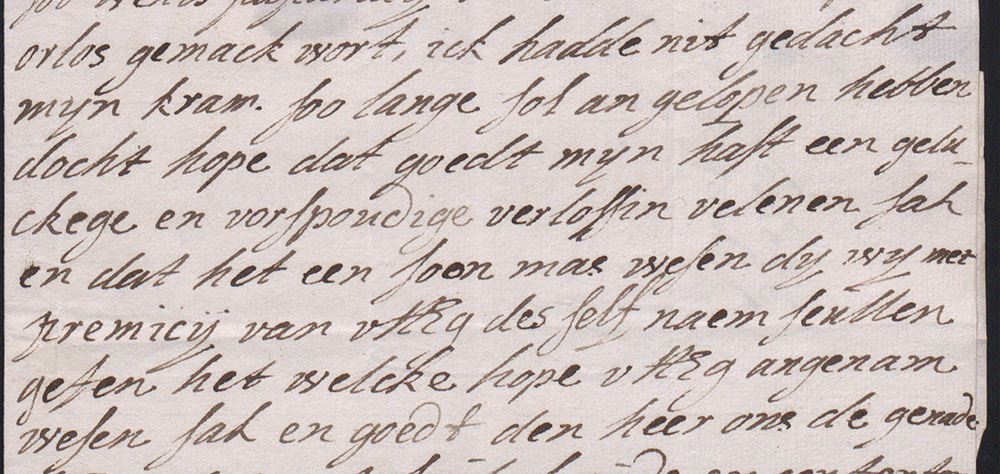 orlos gemack wort, ick hadde nit gedacht
myn kram. soo lange sol an gelopen hebben
docht hope dat goedt myn hast een gelu-
ckege en vorspoudige verlossin velenen sal
en dat het een soon mas wesen dy wy met
premicij van vHEg des selfs naem seullen
gefen het welcke hope vHEg angenam
wesen sal en goedt den heer ons de genade